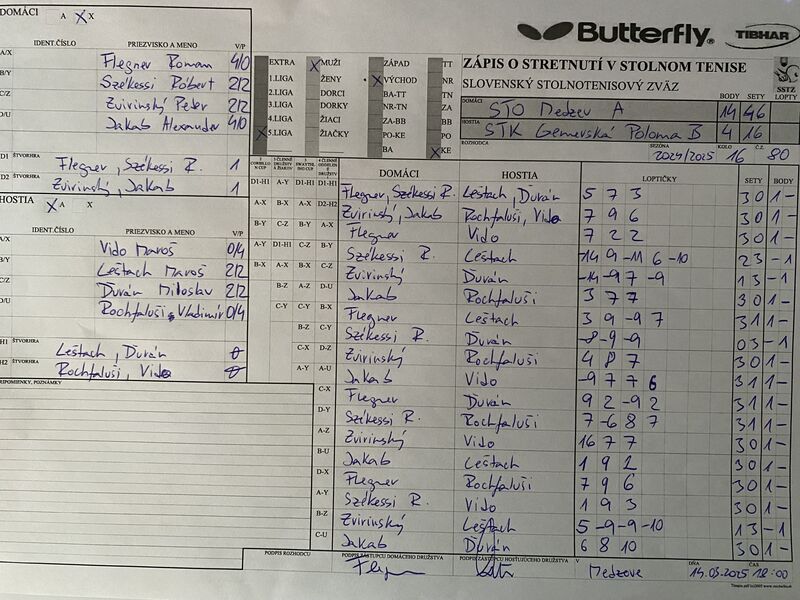 Butterfly
TIBHAR
ZÁPIS O STRETNUTÍ V STOLNOM TENISE
SLOVENSKÝ STOLNOTENISOVÝ ZVÄZ
SSTZ
BODY SETY LOPTY
DOMÁCI STO Medzev A 14 46
HOSTIA STK Gemerská Poloma B 4 16
ROZHODCA SEZÓNA 2024/2025 16 Č.Z. 80
EXTRA X MUŽI ZÁPAD TT
1.LIGA ŽENY X VÝCHOD NR
2.LIGA DORCI BA-TT TN
3.LIGA DORKY NR-TN ZA
4.LIGA ŽIACI ZA-BB BB
X 5.LIGA ŽIAČKY PO-KE PO
BA X KE
DOMÁCI A X X
IDENT.ČÍSLO PRIEZVISKO A MENO V/P
A/X Flegner Roman 4/0
B/Y Székessi Róbert 2/2
C/Z Zvirinský Peter 2/2
D/U Jakab Alexander 4/0
D1 ŠTVORHRA Flegner, Székessi R. 1
D2 ŠTVORHRA Zvirinský, Jakab 1
HOSTIA X A X
IDENT.ČÍSLO PRIEZVISKO A MENO V/P
A/X Vido Maroš 0/4
B/Y Leštach Maroš 2/2
C/Z Ďurán Miloslav 2/2
D/U Rochfaluši Vladimír 0/4
H1 ŠTVORHRA Leštach, Ďurán 0
H2 ŠTVORHRA Rochfaluši, Vido 0
PRIPOMIENKY, POZNÁMKY
DOMÁCI HOSTIA LOPTIČKY SETY BODY
D1-H1 A-Y D1-H1 D1-H1 Flegner, Székessi R. Leštach, Ďurán 5 7 3 3 0 1 -
A-X B-X A-X D2-H2 Zvirinský, Jakab Rochfaluši, Vido 7 9 6 3 0 1 -
B-Y C-Z B-Y A-X Flegner Vido 7 2 2 3 0 1 -
A-Y D1-H1 C-Z B-Y Székessi R. Leštach -14 9 -11 6 -10 2 3 - 1
B-X A-X B-X C-Z Zvirinský Ďurán -14 -9 7 -9 1 3 - 1
B-Z A-Z D-U Jakab Rochfaluši 3 7 7 3 0 1 -
C-Y C-Y B-X Flegner Leštach 3 9 -9 7 3 1 1 -
B-Z C-Y Székessi R. Ďurán -8 -9 -9 0 3 - 1
C-X D-Z Zvirinský Rochfaluši 4 8 7 3 0 1 -
A-Y A-U Jakab Vido -9 7 7 6 3 1 1 -
C-X Flegner Ďurán 9 2 -9 2 3 1 1 -
D-Y Székessi R. Rochfaluši 7 -6 8 7 3 1 1 -
A-Z Zvirinský Vido 16 7 7 3 0 1 -
B-U Jakab Leštach 1 9 2 3 0 1 -
D-X Flegner Rochfaluši 7 9 6 3 0 1 -
A-Y Székessi R. Vido 1 9 3 3 0 1 -
B-Z Zvirinský Leštach 5 -9 -9 -10 1 3 - 1
C-U Jakab Ďurán 6 8 10 3 0 1 -
PODPIS ROZHODCU PODPIS ZÁSTUPCU DOMÁCEHO DRUŽSTVA PODPIS ZÁSTUPCU HOSŤUJÚCEHO DRUŽSTVA V Medzeve DŇA 14.03.2025 ČAS 18:00